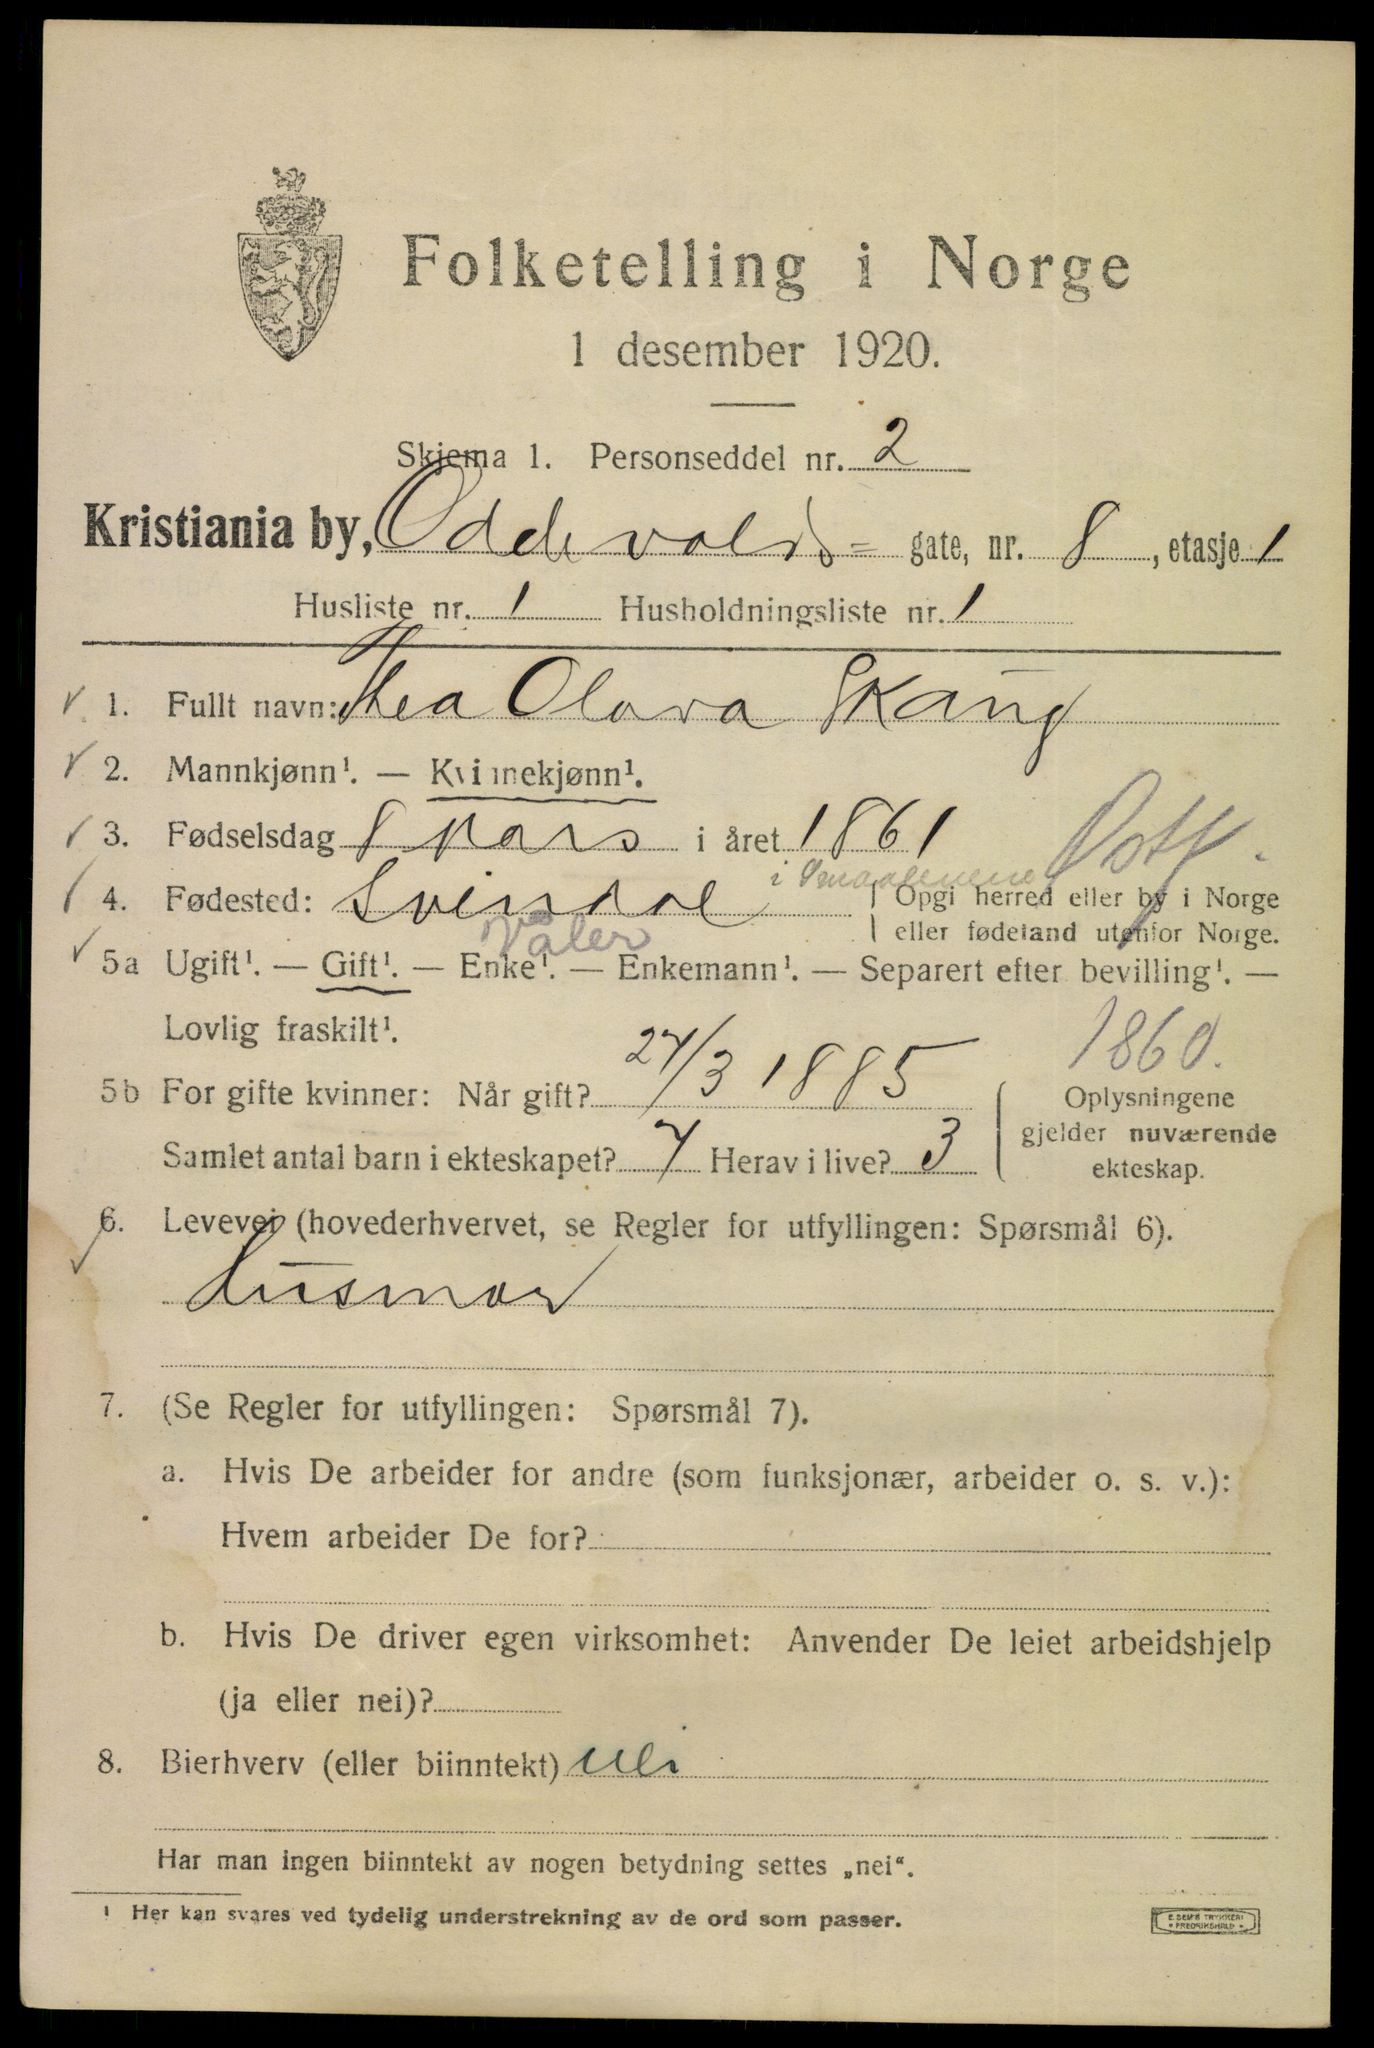 Folketelling i Norge
1 desember 1920.
Skjema 1. Personseddel nr. 2
Kristiania by, Oddevalds= gate, nr. 8, etasje 1
Husliste nr. 1 Husholdningsliste nr. 1
1. Fullt navn: Thea Olava Skaug
2. Mannkjønn¹. — Kvinnekjønn¹.
3. Fødselsdag 8 Mars i året 1861
4. Fødested: Svindal i Smaalenene Opgi herred eller by i Norge
eller fødeland utenfor Norge.
Våler
5a Ugift¹. — Gift¹. — Enke¹. — Enkemann¹. — Separert efter bevilling¹. —
Lovlig fraskilt¹.
1860.
5b For gifte kvinner: Når gift? 27/3 1885 Oplysningene
gjelder nuværende
ekteskap.
Samlet antal barn i ekteskapet? 7 Herav i live? 3
6. Levevei (hovederhvervet, se Regler for utfyllingen: Spørsmål 6).
husmor
7. (Se Regler for utfyllingen: Spørsmål 7).
a. Hvis De arbeider for andre (som funksjonær, arbeider o. s. v.):
Hvem arbeider De for?
b. Hvis De driver egen virksomhet: Anvender De leiet arbeidshjelp
(ja eller nei)?
8. Bierhverv (eller biinntekt) nei
Har man ingen biinntekt av nogen betydning settes „nei“.
¹ Her kan svares ved tydelig understrekning av de ord som passer.
E. SEM'S TRYKKERI
• FREDRIKSHALD •